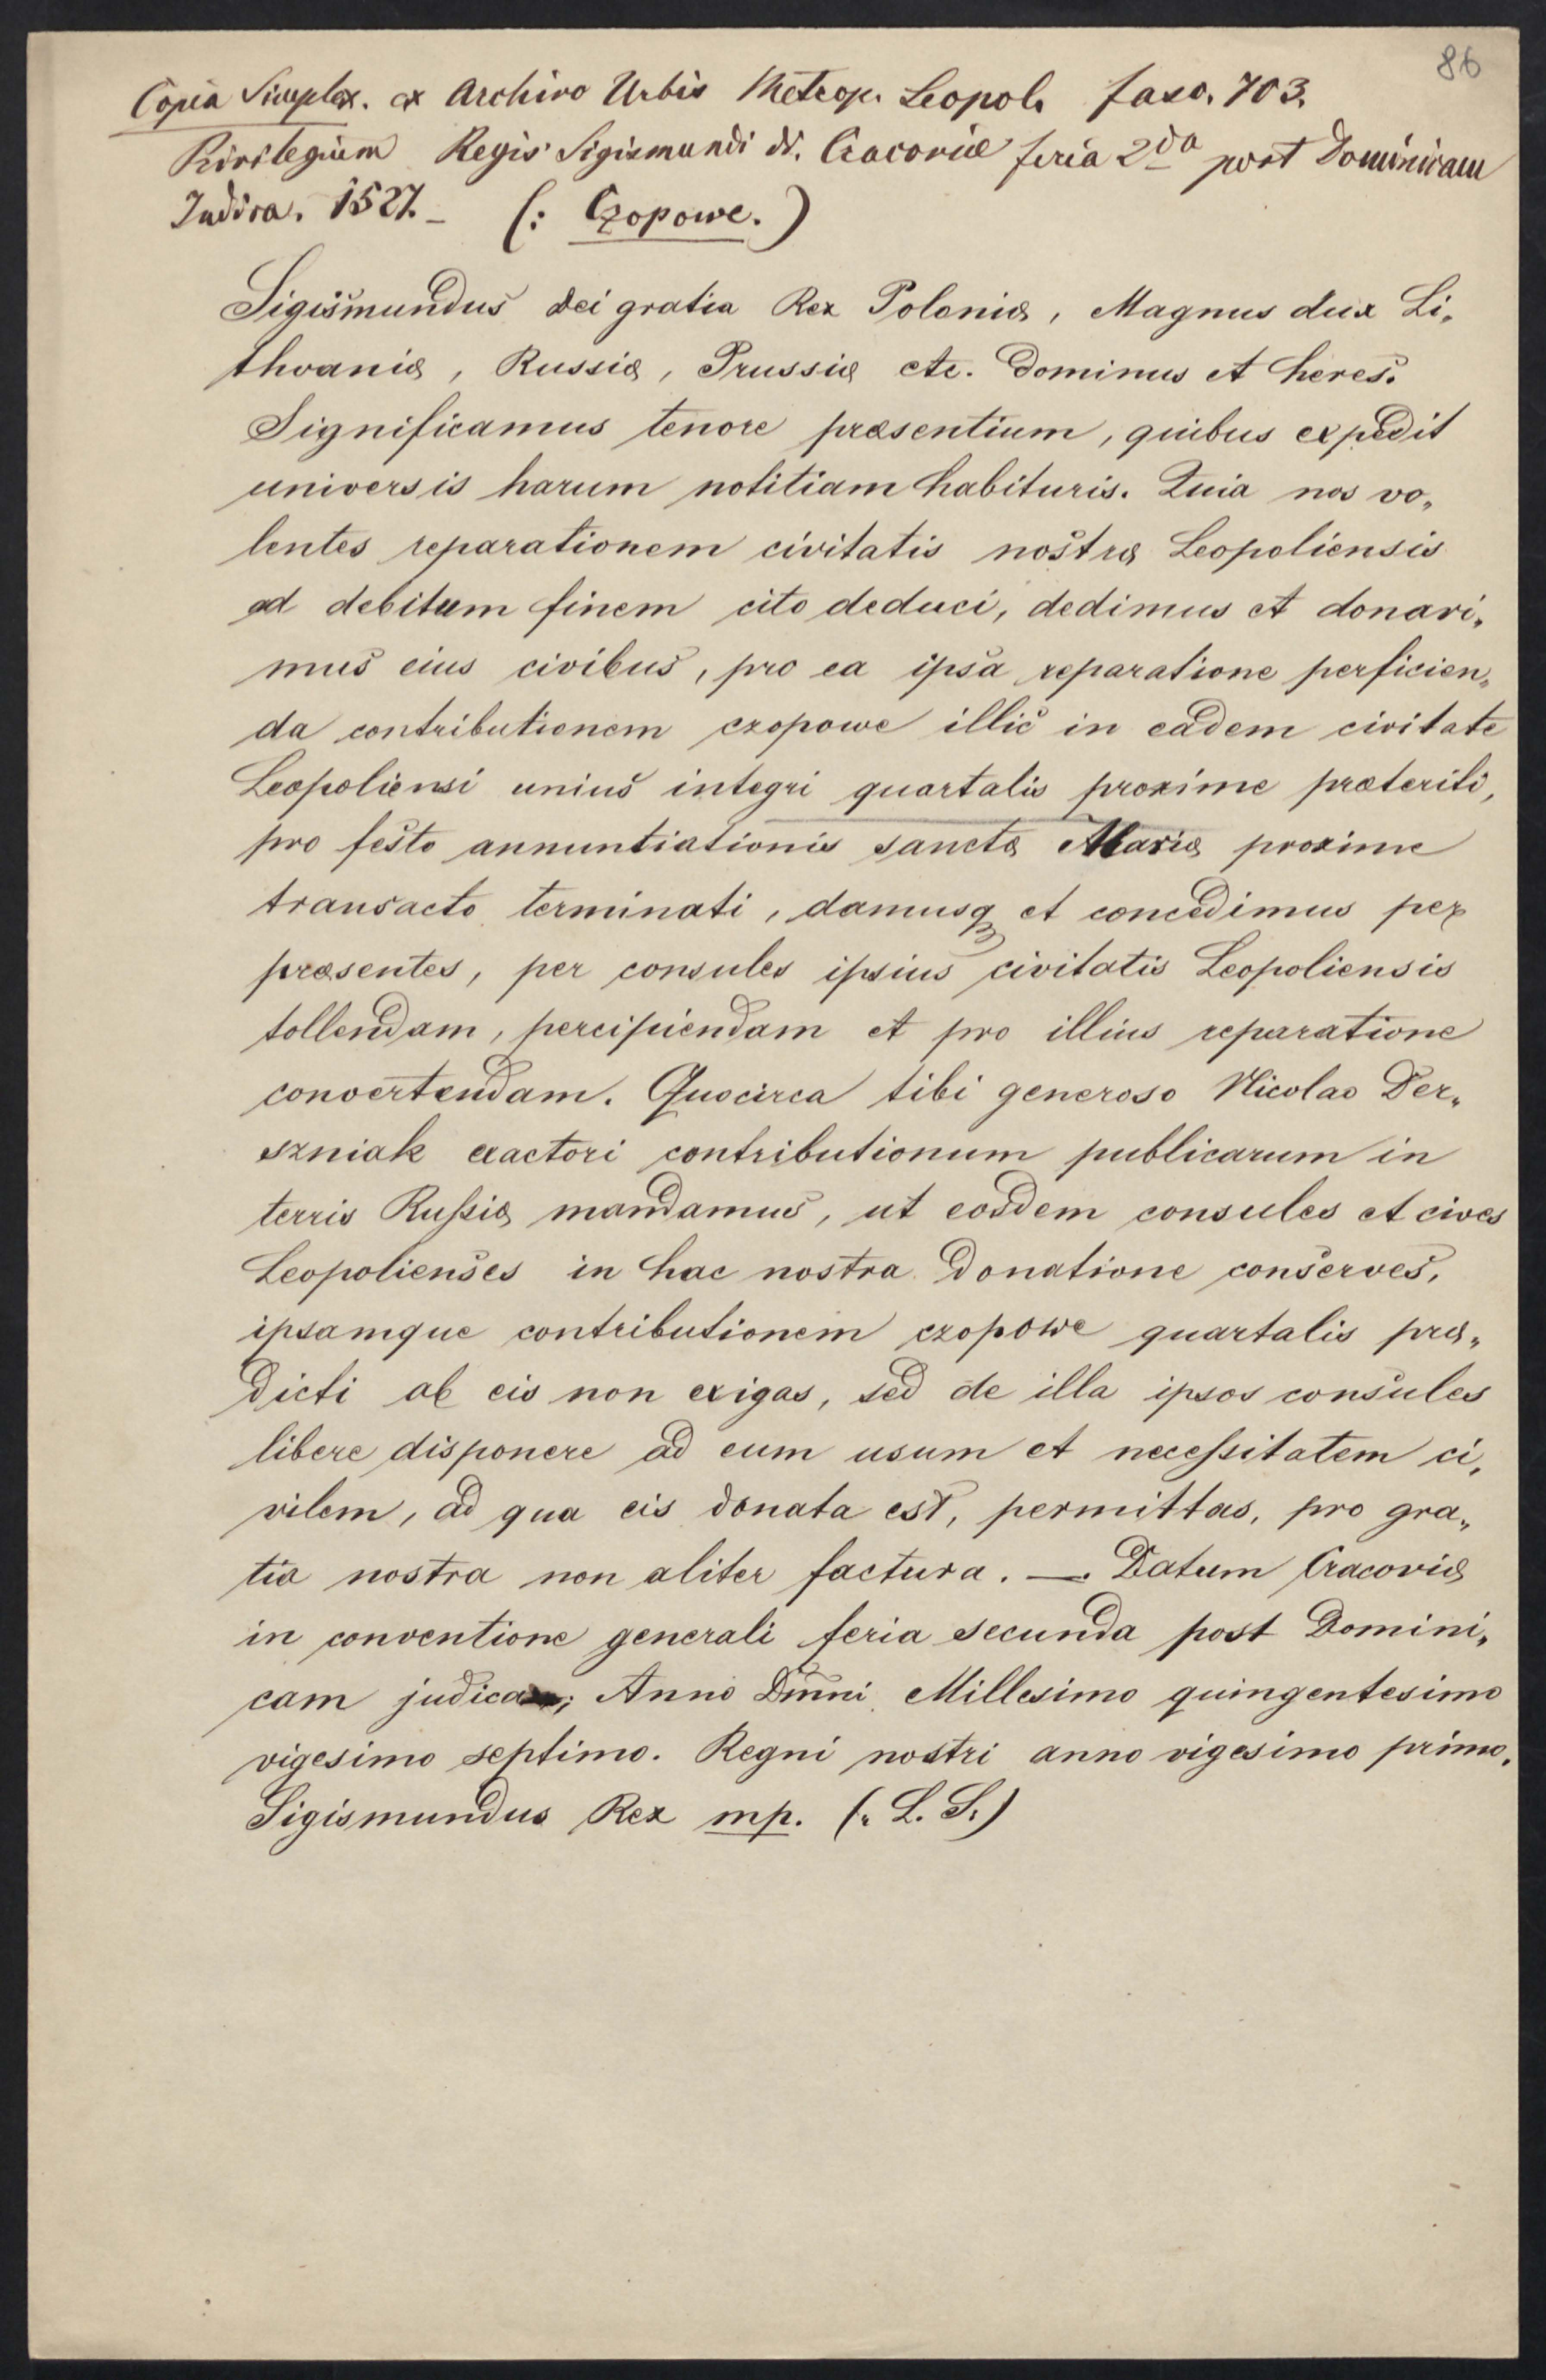 86
Copia Simplex. ex Archivo Urbis Metrop. Leopol. fasc. 703.
Privilegium Regis Sigismundi dt. Cracoviæ feria 2da post Dominicam
Judica. 1527. – (: Czopowe. )
Sigismundus Dei gratia Rex Polonię, Magnus dux Li„
thvanię, Russię, Prussię etc. Dominus et heres.
Significamus tenore præsentium, quibus expedit
universis harum notitiam habituris. Quia nos vo„
lentes reparationem civitatis nostrę Leopoliensis
ad debitum finem cito deduci, dedimus et donavi„
mus eius civibus, pro ea ipsa reparatione perficien„
da contributionem czopowe illic in eadem civitate
Leopoliensi unius integri quartalis proxime præteriti,
pro festo annuntiationis sanctę Marię proxime
transacto terminati, damusq et concedimus per
præsentes, per consules ipsius civitatis Leopoliensis
tollendam, percipiendam et pro illius reparatione
convertendam. Quocirca tibi generoso Nicolao Der„
szniak exactori contributionum publicarum in
terris Rußię mandamus, ut eosdem consules et cives
Leopolienses in hac nostra Donatione conserves,
ipsamque contributionem czopowe quartalis prę„
dicti ab eis non exigas, sed de illa ipsos consules
libere disponere ad eum usum et neceßitatem ci„
vilem, ad qua eis donata est, permittas, pro gra„
tia nostra non aliter factura. —. Datum Cracovię
in conventione generali feria secunda post Domini„
cam judica; Anno Dmni Millesimo quingentesimo
vigesimo septimo. Regni nostri anno vigesimo primo.
Sigismundus Rex mp. (: L. S.)